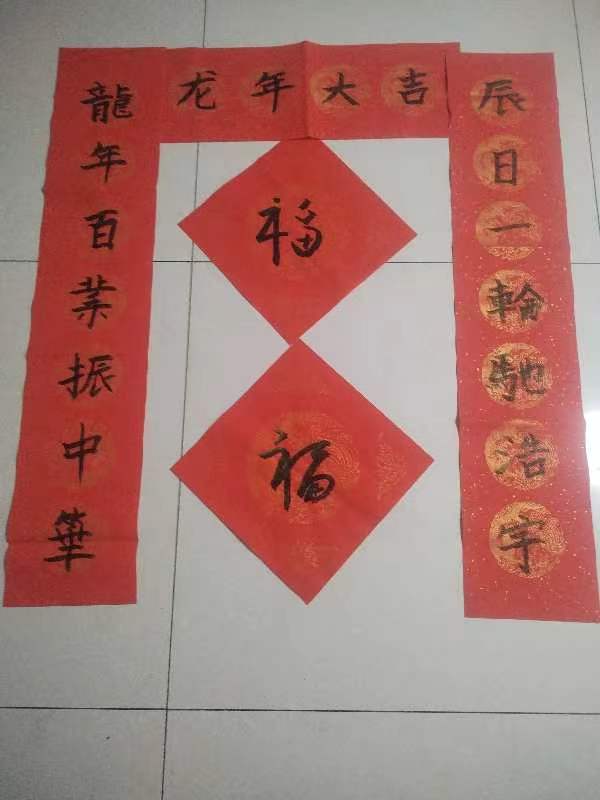 龙年大吉
辰日一輪馳浩宇
龍年百業振中華
福
福